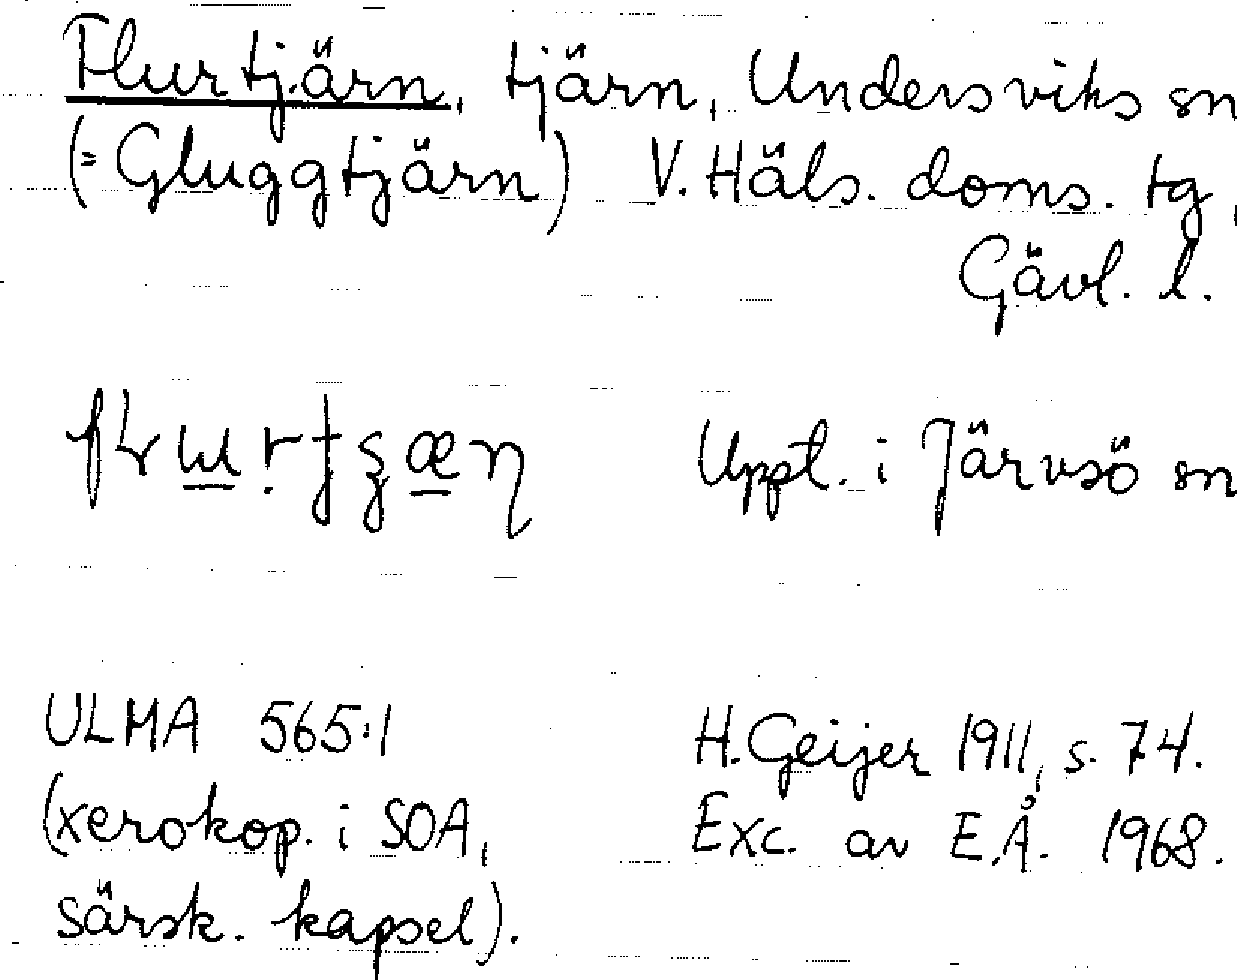 Flurtjärn, tjärn, Undersviks sn
(= Gluggtjärn) V. Häls. doms. tg,
Gävl. l.
Uppt. i Järvsö sn
ULMA 565:1 H. Geijer 1911, s. 74.
(xerokop. i SOA, Exc. av E.Å. 1968.
särsk. kapsel).